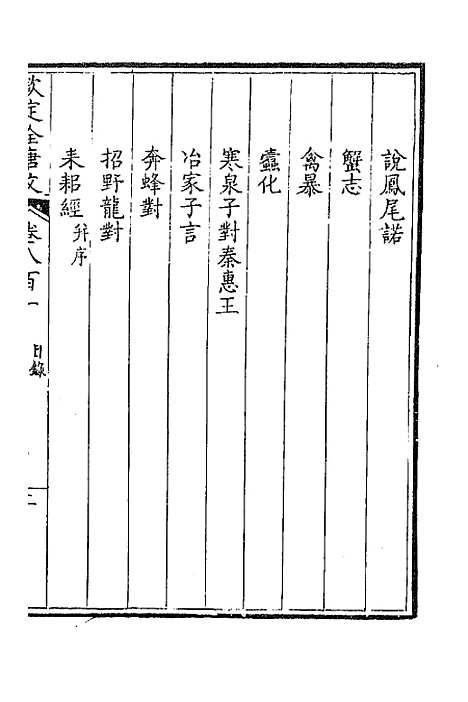 說鳳尾諾
蟹志
禽暴
蠹化
寒泉子對秦惠王
冶家子言
奔蜂對
招野龍對
耒耜經并序
欽定全唐文 卷八百一 目錄